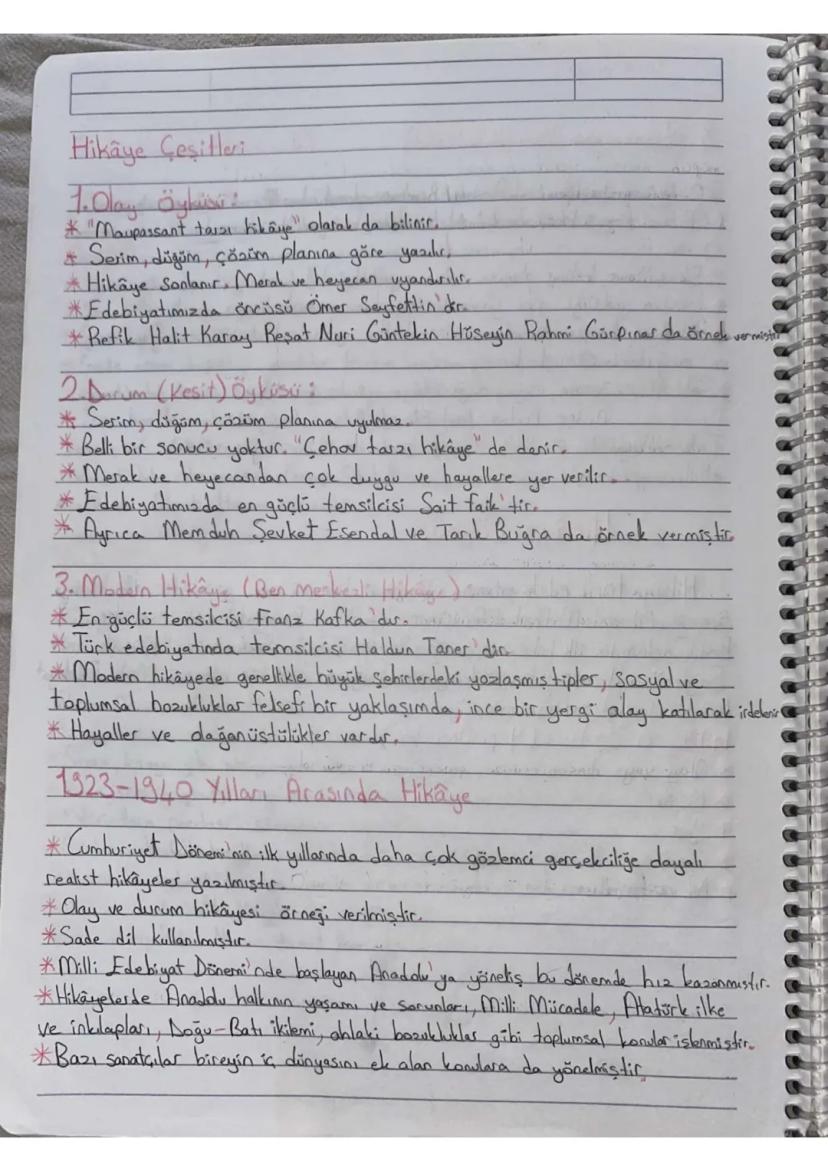 Hikâye Çeşitleri
1. Olay Öyküsü:
* "Maupassant tarzı hikâye" olarak da bilinir.
* Serim, düğüm, çözüm planına göre yazılır.
* Hikâye sonlanır. Merak ve heyecan uyandırılır.
* Edebiyatımızda öncüsü Ömer Seyfettin'dir.
* Refik Halit Karay Reşat Nuri Güntekin Hüseyin Rahmi Gürpınar da örnek vermiştir
2. Durum (Kesit) Öyküsü:
* Serim, düğüm, çözüm planına uyulmaz.
* Belli bir sonucu yoktur. "Çehov tarzı hikâye" de denir.
* Merak ve heyecandan çok duygu ve hayallere yer verilir.
* Edebiyatımızda en güçlü temsilcisi Sait faik'tir.
* Ayrıca Memduh Şevket Esendal ve Tarık Buğra da örnek vermiştir.
3. Modern Hikâye (Ben merkezli Hikâye):
* En güçlü temsilcisi Franz Kafka'dır.
* Türk edebiyatında temsilcisi Haldun Taner'dir.
* Modern hikâyede genellikle büyük şehirlerdeki yozlaşmış tipler, sosyal ve
toplumsal bozukluklar felsefi bir yaklaşımda, ince bir yergi alay katılarak irdelenir
* Hayaller ve dağanüstülükler vardır.
1923-1940 Yılları Arasında Hikâye
* Cumhuriyet Dönemi'nin ilk yıllarında daha çok gözlemci gerçekciliğe dayalı
realist hikâyeler yazılmıştır.
* Olay ve durum hikâyesi örneği verilmiştir.
* Sade dil kullanılmıştır.
* Milli Edebiyat Dönemi'nde başlayan Anadolu'ya yöneliş bu dönemde hız kazanmıştır.
* Hikâyelerde Anadolu halkının yaşamı ve sorunları, Milli Mücadele, Atatürk ilke
ve inkılapları, Doğu-Batı ikilemi, ahlaki bozukluklar gibi toplumsal konular işlenmiştir.
* Bazı sanatçılar bireyin iç dünyasını ek alan konulara da yönelmiştir.